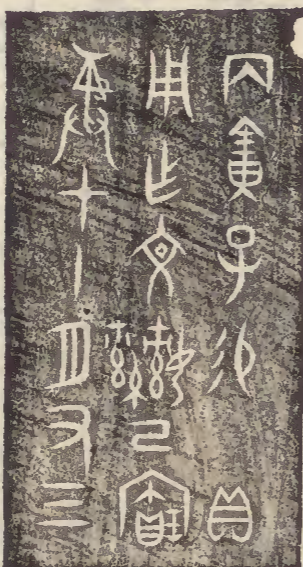 丙寅子易貝
用乍文己寶
才十月又三